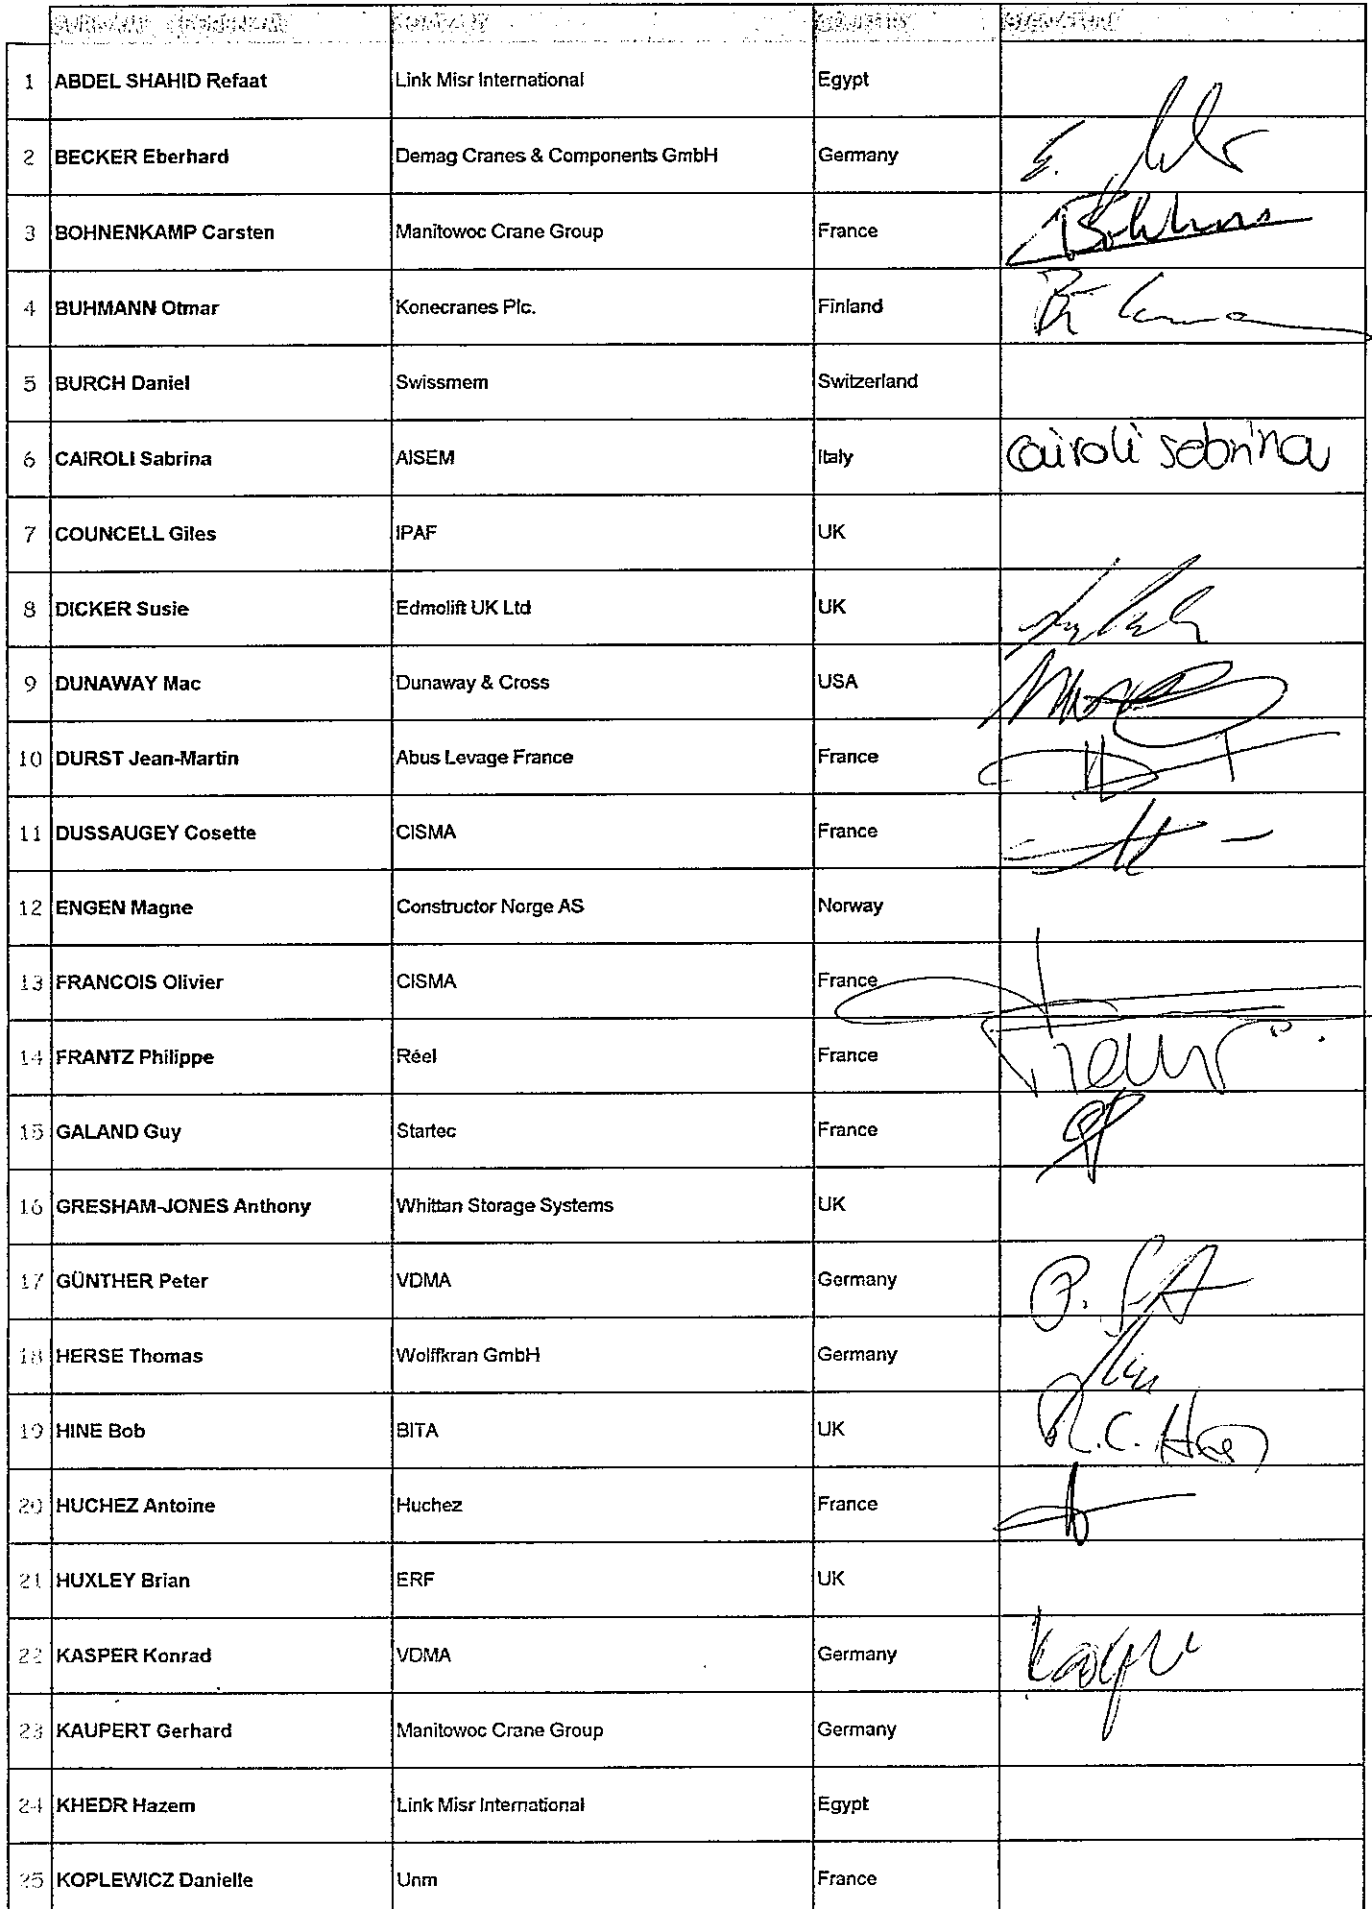 1 ABDEL SHAHID Refaat Link Misr International Egypt
2 BECKER Eberhard Demag Cranes & Components GmbH Germany
3 BOHNENKAMP Carsten Manitowoc Crane Group France
4 BUHMANN Otmar Konecranes Plc. Finland
5 BURCH Daniel Swissmem Switzerland
6 CAIROLI Sabrina AISEM Italy cairoli sabrina
7 COUNCELL Giles IPAF UK
8 DICKER Susie Edmolift UK Ltd UK
9 DUNAWAY Mac Dunaway & Cross USA
10 DURST Jean-Martin Abus Levage France France
11 DUSSAUGEY Cosette CISMA France
12 ENGEN Magne Constructor Norge AS Norway
13 FRANCOIS Olivier CISMA France
14 FRANTZ Philippe Réel France
15 GALAND Guy Startec France
16 GRESHAM-JONES Anthony Whittan Storage Systems UK
17 GÜNTHER Peter VDMA Germany
18 HERSE Thomas Wolffkran GmbH Germany
19 HINE Bob BITA UK R.C.
20 HUCHEZ Antoine Huchez France
21 HUXLEY Brian ERF UK
22 KASPER Konrad VDMA Germany
23 KAUPERT Gerhard Manitowoc Crane Group Germany
24 KHEDR Hazem Link Misr International Egypt
25 KOPLEWICZ Danielle Unm France